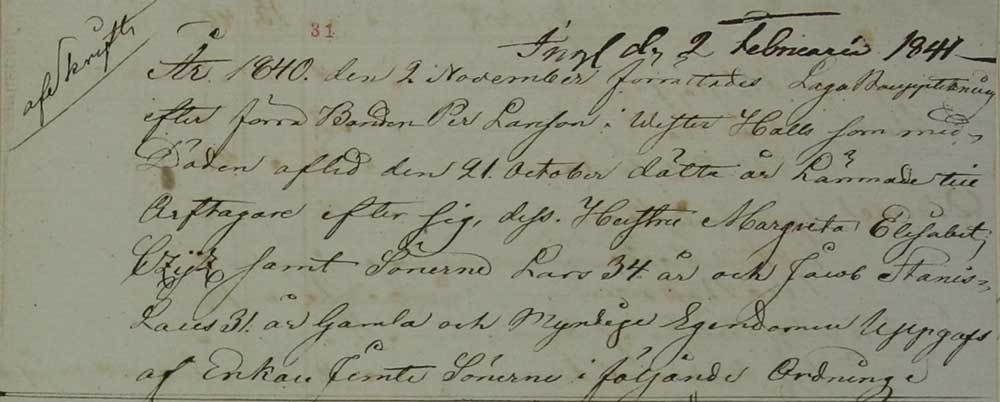 afskrift
31
Ingl d. 2 Februarii 1841
År 1840. den 2 November förrättades Laga Bouppteckning
efter förra Bonden Per Larson i Wester Halls som med
Döden aflid den 21. October dätta år Lämnade till
Arftagare efter sig, dess. Hustru Margreta Elisabet
samt Sönerne Lars 34 år och Jacob Stanis-
laus 31. år Gamla och Myndige Egendomen Uppgafs
af Enkan Jemte Sönerne i följande Ordning